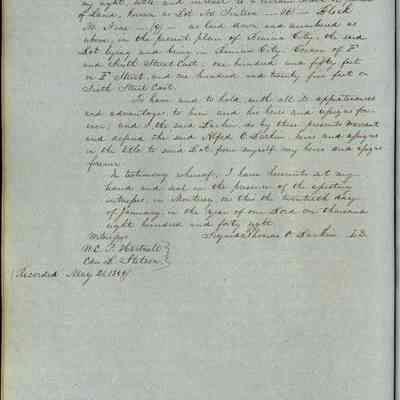 my right, title and interest to a certain
of Land, known as Lot No Sixteen — 16 — Block
No Nine — (9) — as laid down and numbered as
above, in the present plan of Benicia City, the said
Lot lying and being in Benicia City. Corner of F
and Sixth Street East; one hundred and fifty feet
on F Street, and one hundred and twenty five feet on
Sixth Street East.
To have and to hold, with all its appurtenances
and advantages, to him and his heirs and assigns for
ever; and I the said Larkin do by these presents warrant
and defend the said Alfed O. Larkin, heirs and assigns
in the title to said Lot, from myself, my heirs and assigns
forever.
In testimony whereof, I have hereunto set my
hand and seal in the presence of the
witnesses, in Monterey on this the twentieth day
of January, in the year of our Lord one thousand
eight hundred and forty eight.
Witnesses Signed Thomas O. Larkin L.S.
W.E.P. Hartnell }
Edw. L. Stetson }
(Recorded May 21 1849)